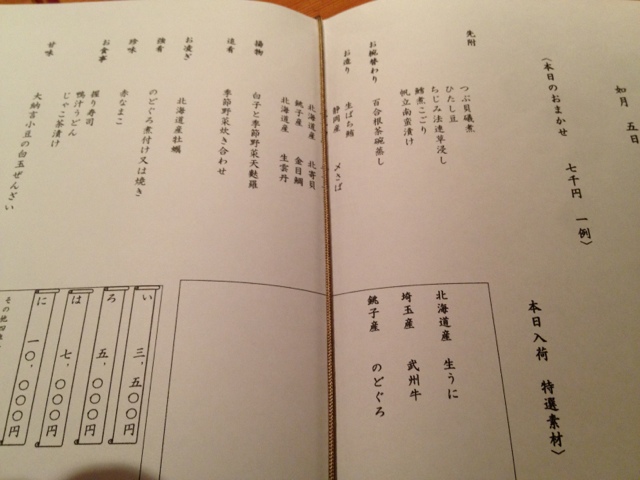 如月 五日
〈本日のおまかせ 七千円 一例〉
先附
つぶ貝磯煮
ひたし豆
ちじみ法連草浸し
鱈煮こごり
帆立南蛮漬け
お椀替わり
百合根茶碗蒸し
お造り
生ばち鮪
静岡産 〆さば
北海道産 北寄貝
銚子産 金目鯛
北海道産 生雲丹
揚物
白子と季節野菜天麩羅
進肴
季節野菜炊き合わせ
お凌ぎ
北海道産牡蠣
強肴
のどぐろ煮付け又は焼き
珍味
赤なまこ
お食事
握り寿司
鴨汁うどん
じゃこ茶漬け
甘味
大納言小豆の白玉ぜんざい
本日入荷 特選素材〉
北海道産 生うに
埼玉産 武州牛
銚子産 のどぐろ
い 三,五〇〇円
ろ 五,〇〇〇円
は 七,〇〇〇円
に 一〇,〇〇〇円
その他